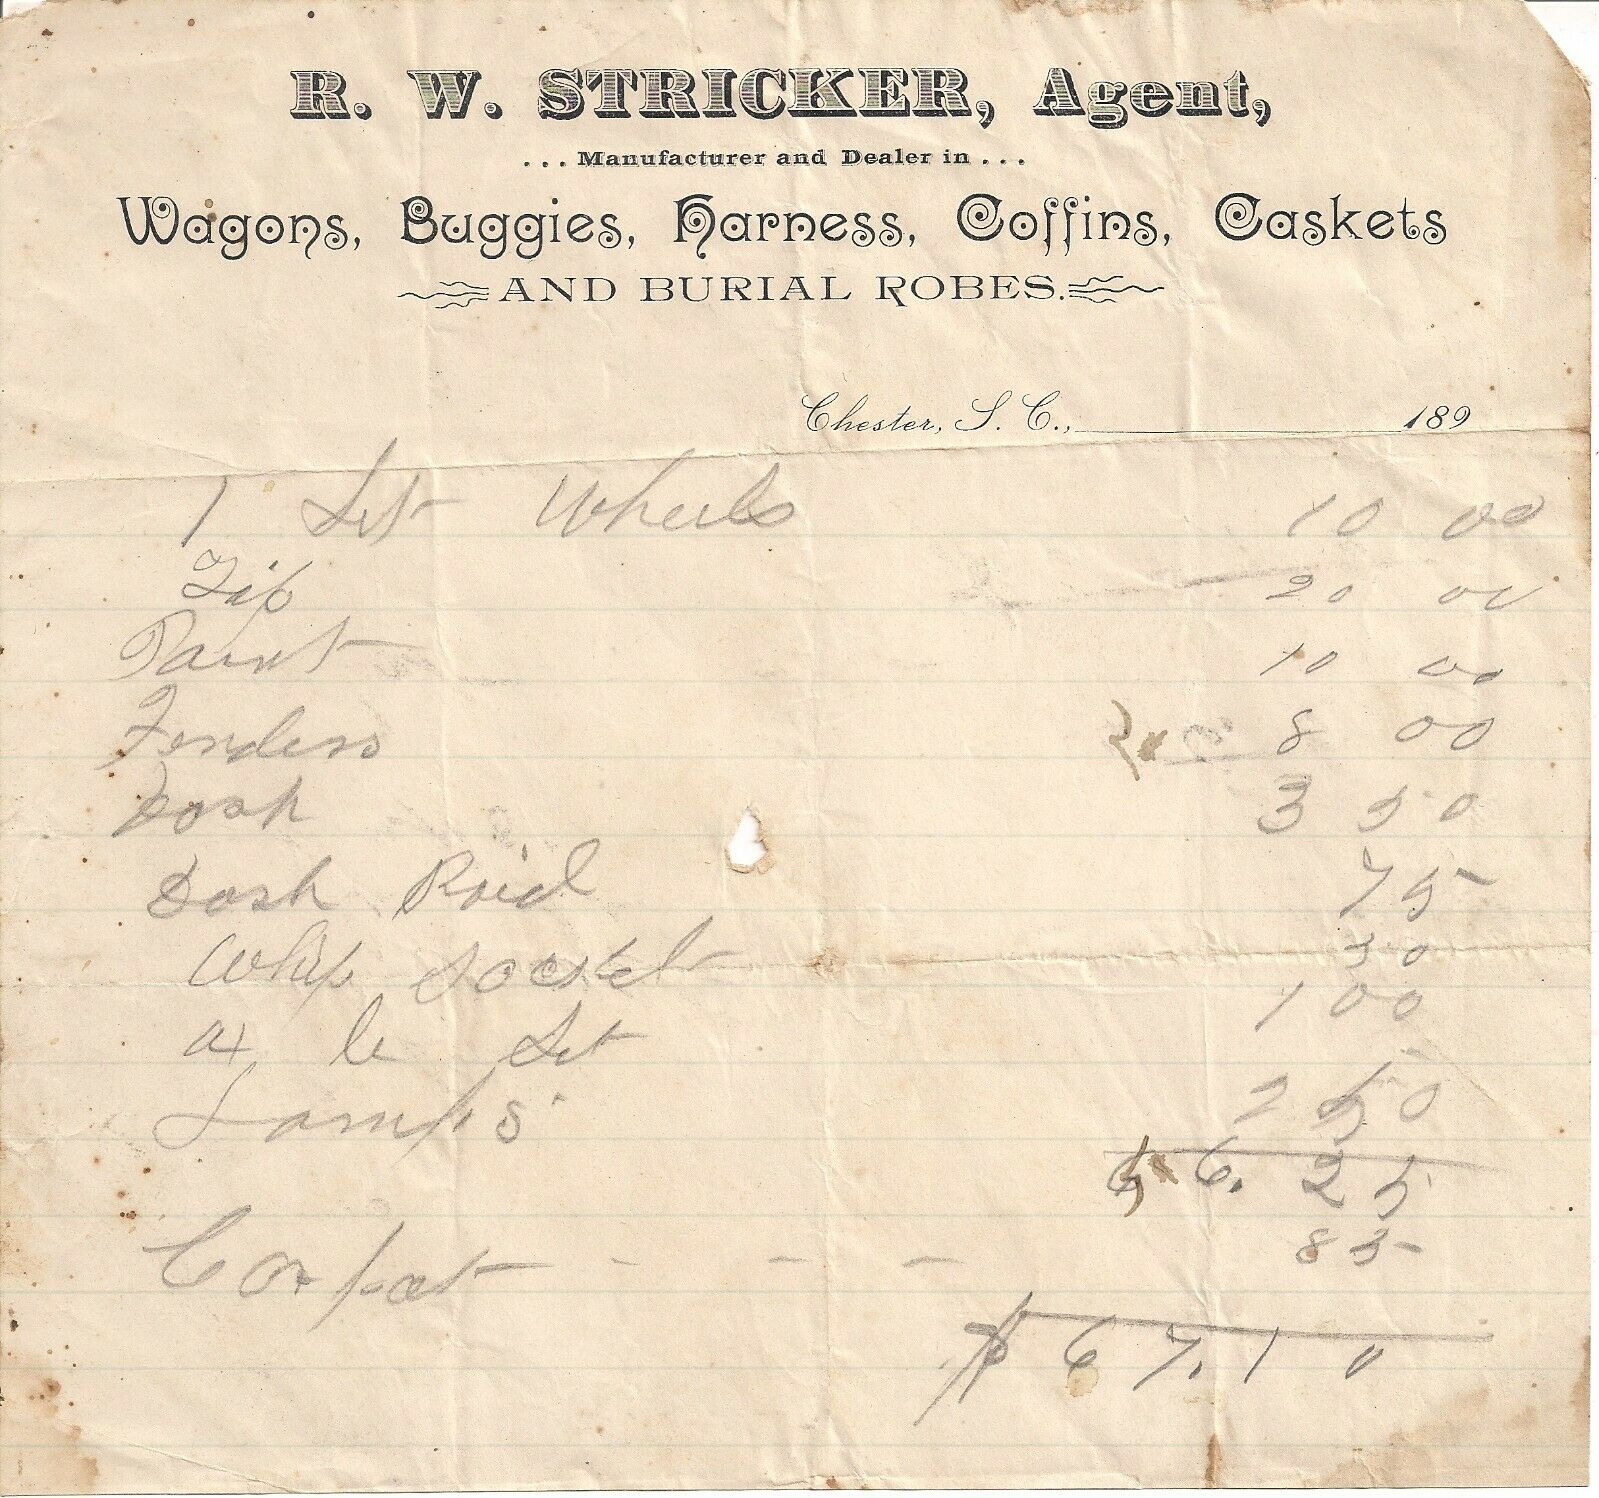 R. W. STRICKER, Agent,
. . . Manufacturer and Dealer in . . .
Wagons, Buggies, Harness, Coffins, Caskets
AND BURIAL ROBES.
Chester, S. C., 189
1 Set Wheels 10 00
Top 20 00
Paint 10 00
Fenders 8 00
Dash 3 50
Dash Raid 75
Whip Socket 50
ax le Set 1 00
Lamps 2 50
6 6. 25
Carpet - - - 85
$ 67.10